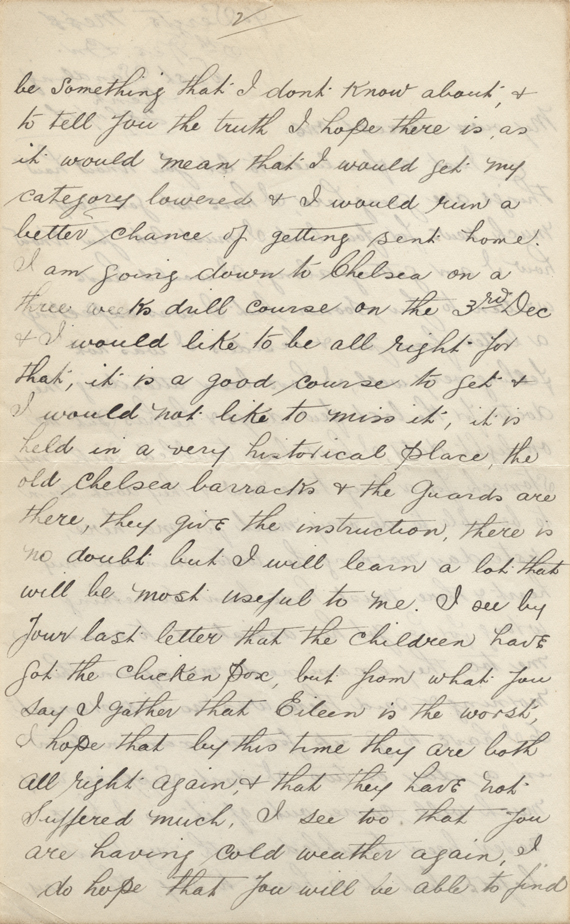 2
be something that I dont know about, &
to tell you the truth I hope there is, as
it would mean that I would get my
category lowered & I would run a
better chance of getting sent home.
I am going down to Chelsea on a
three weeks drill course on the 3rd Dec
& I would like to be all right for
that, it is a good course to get &
I would not like to miss it, it is
held in a very historical place, the
old Chelsea barracks & the Guards are
there, they give the instruction, there is
no doubt but I will learn a lot that
will be most useful to me. I see by
your last letter that the children have
got the chicken pox, but from what you
say I gather that Eileen is the worst,
I hope that by this time they are both
all right again, & that they have not
suffered much, I see too that you
are having cold weather again, I
do hope that you will be able to find